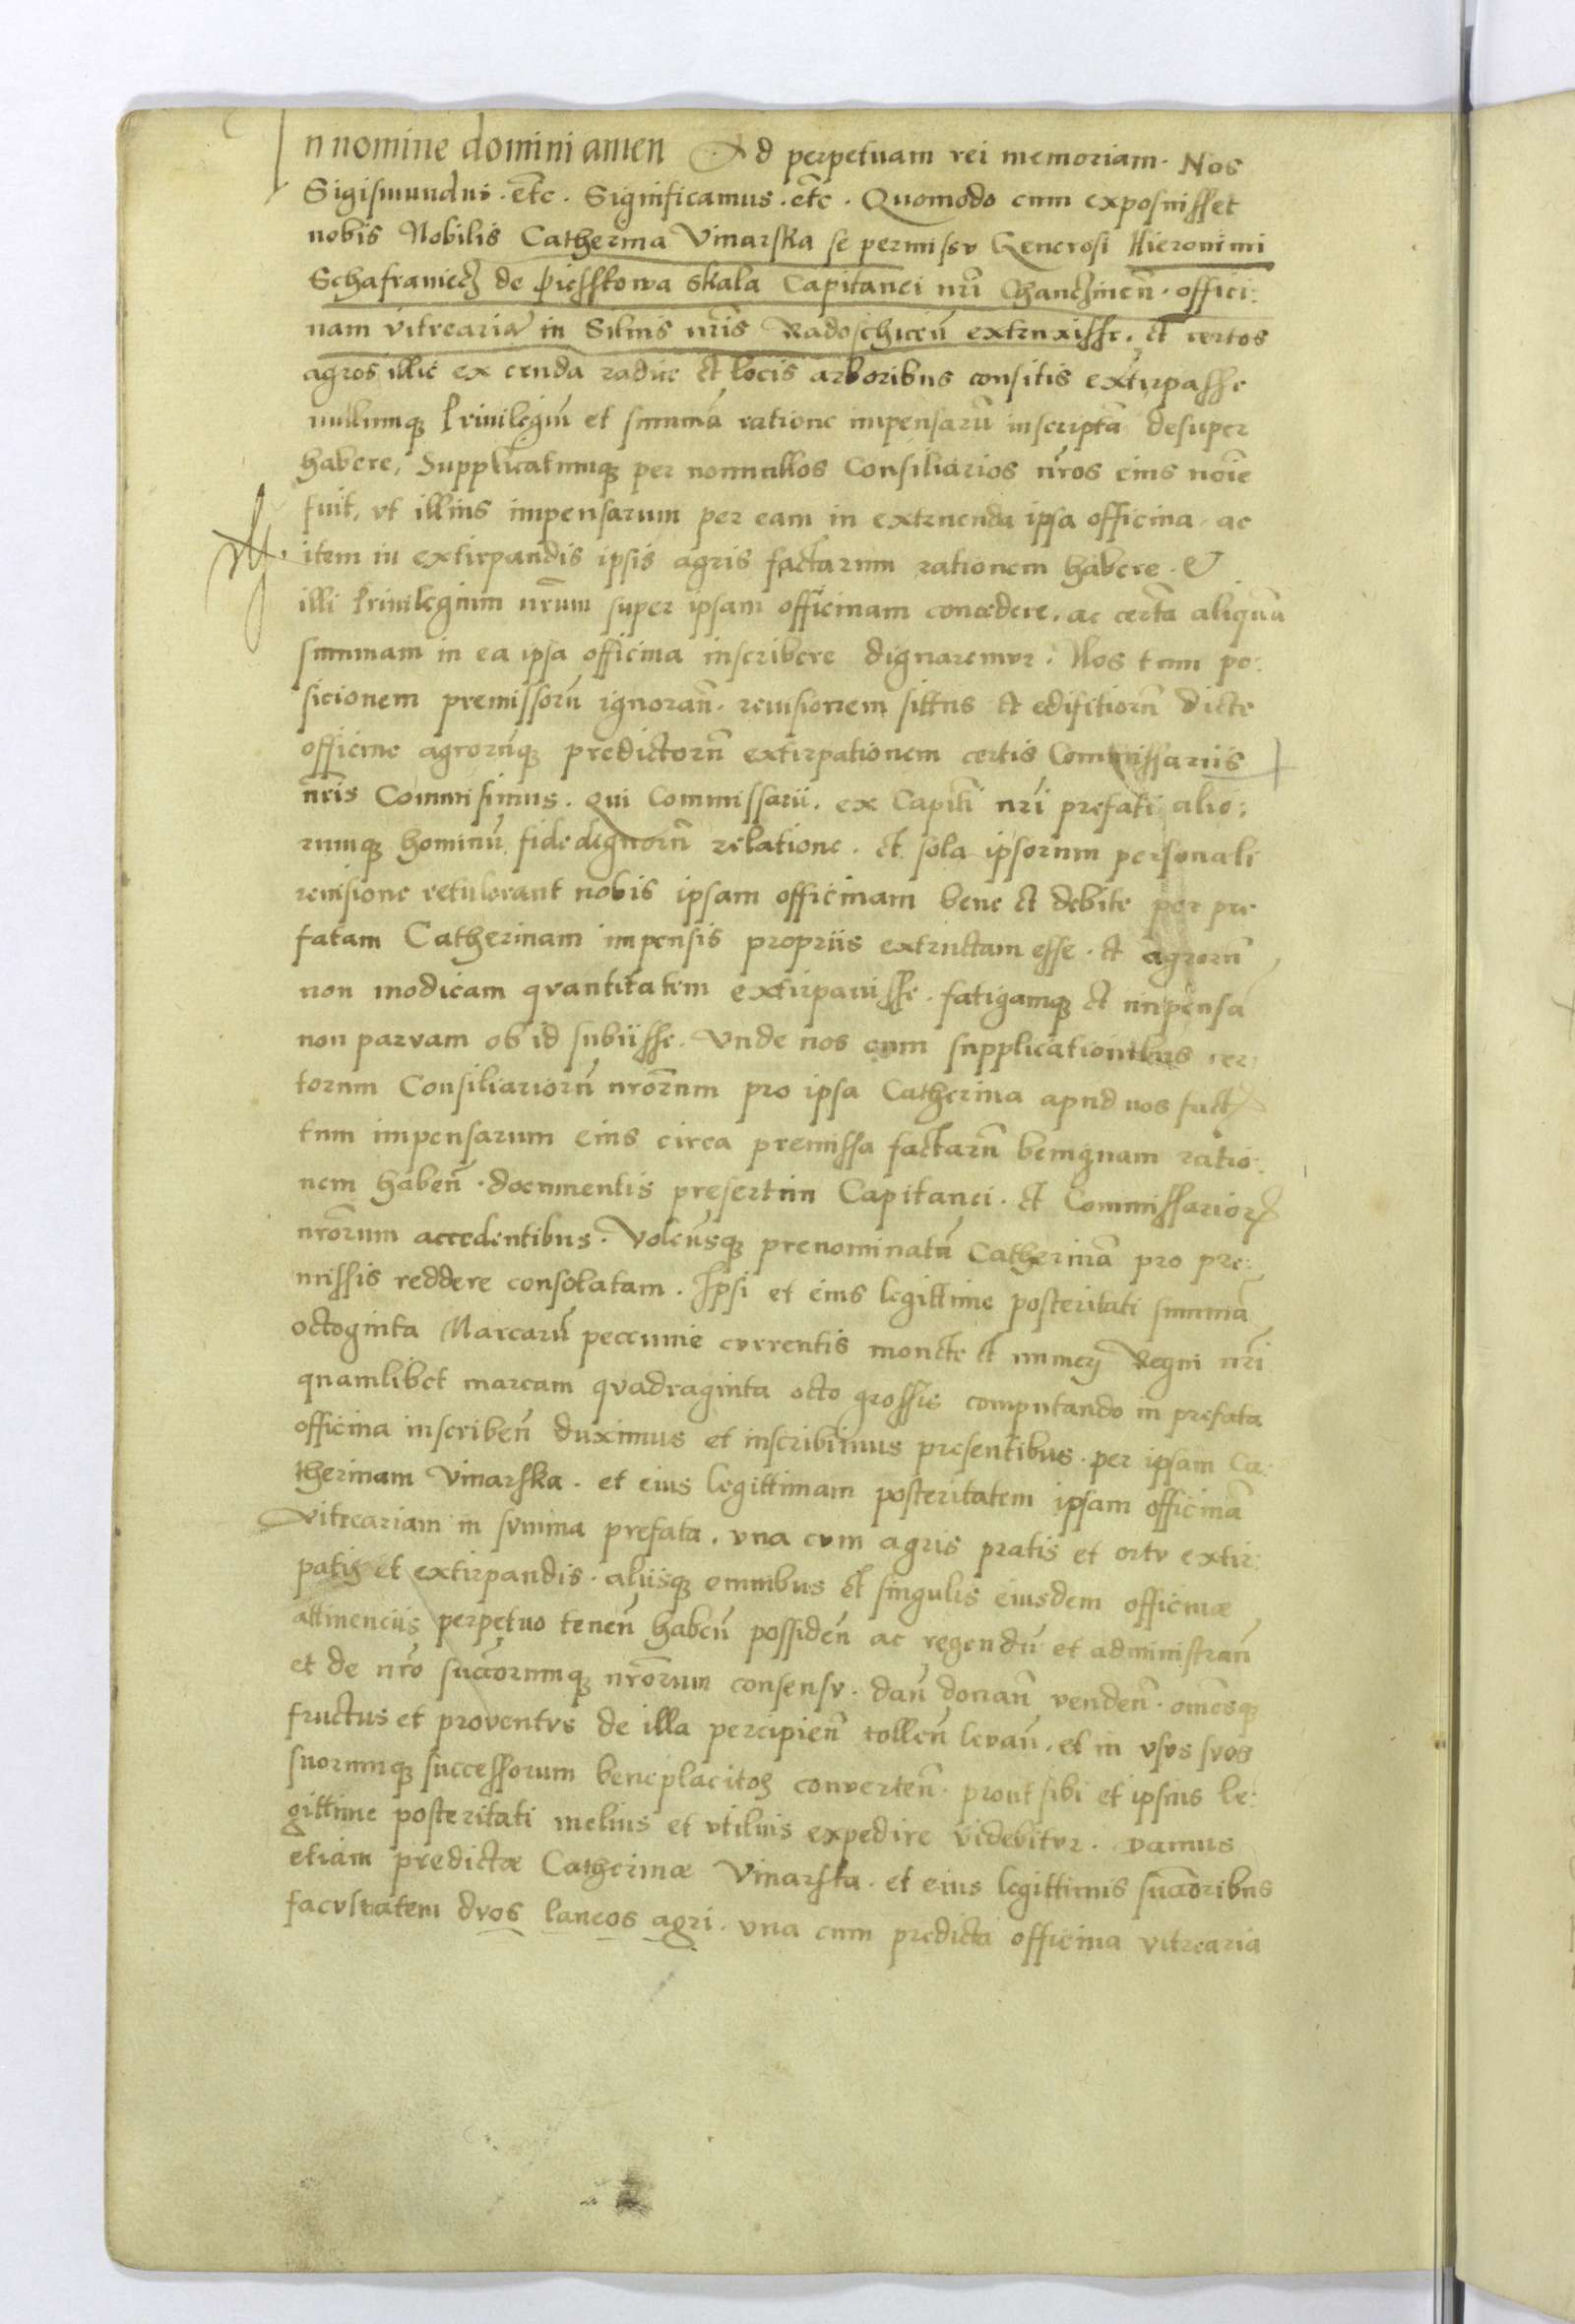 In nomine domini amen Ad perpetuam rei memoriam. Nos
Sigismundus. etc. Significamus. etc. Quomodo cum exposuisset
nobis Nobilis Catherina Vinarska se permissu Generosi Hieronimi
Schafraniecz de Piesskowa skala Capitanei nrı̄ Chanczinen̄. offici:
nam vitreariā in Siluis nrı̄s Radoschicen̄ extruxisse. et certos
agros illic ex cruda radice et locis arboribus consitis extirpasse
nullumq Priuilegiū et summā ratione impensarū inscriptā desuper
habere, Supplicatumq per nonnullos Consiliarios nr̄os eius noīe
fuit, vt illius impensarum per eam in extruenda ipsa officina, ac
item in extirpandis ipsis agris factarum rationem habere. &
illi Priuilegium nr̄um super ipsam officinam concedere, ac certā aliquā
summam in ea ipsa officina inscribere dignaremur. Nos tum po:
sicionem premissorū ignoran̄. reuisionem sittus et edifitiorū dicte
officine agrorūq predictorū extirpationem certis Commissariis
nr̄is Commisimus. Qui Commissarii. ex Capitī nrı̄ prefati alio:
rumq hominū fidedignorū relatione. et sola ipsorum personali
reuisione retulerant nobis ipsam officinam bene et debite per pre
fatam Catherinam impensis propriis extructam esse. et agrorū
non modicam quantitatem extirpauisse. fatigamq et impensā
non paruam ob id subiisse. Vnde nos cum supplicationibus cer
torum Consiliariorū nr̄orum pro ipsa Catherina apud nos fact
tum impensarum eius circa premissa factarū benignam ratio:
nem haben̄. documentis presertim Capitanei. et Commissarior
nr̄orum accedentibus. Volen̄sq prenominatā Catherinā pro pre:
missis reddere consolatam. Ipsi et eius legittime posteritati summā
octoginta Marcarū peccunie currentis monete et numerj Regni nrı̄
quamlibet marcam quadraginta octo grossis computando in prefata
officina inscriben̄ duximus et inscribimus presentibus. per ipsam Ca:
therinam Vinarska. et eius legittimam posteritatem ipsam officinā
Vitreariam in summa prefata. vna cum agris pratis et ortu extir:
patis et extirpandis. aliisq omnibus et singulis eiusdem officinæ
attinenciis perpetuo tenen̄ haben̄ possiden̄ ac regendū et administran̄
et de nr̄o succ̄orumq nr̄orum consensu. dan̄ donan̄ venden̄. omēsq
fructus et prouentus de illa percipien̄ tollen̄ leuan̄. et in vsus suos
suorumq successorum beneplacitos conuerten̄. prout sibi et ipsius le:
gittime posteritati melius et vtilius expedire videbitur. Damus
etiam predictæ Catherinæ Vinarska. et eius legittimis succ̄oribus
facultatem duos laneos agri. vna cum predicta officina vitrearia